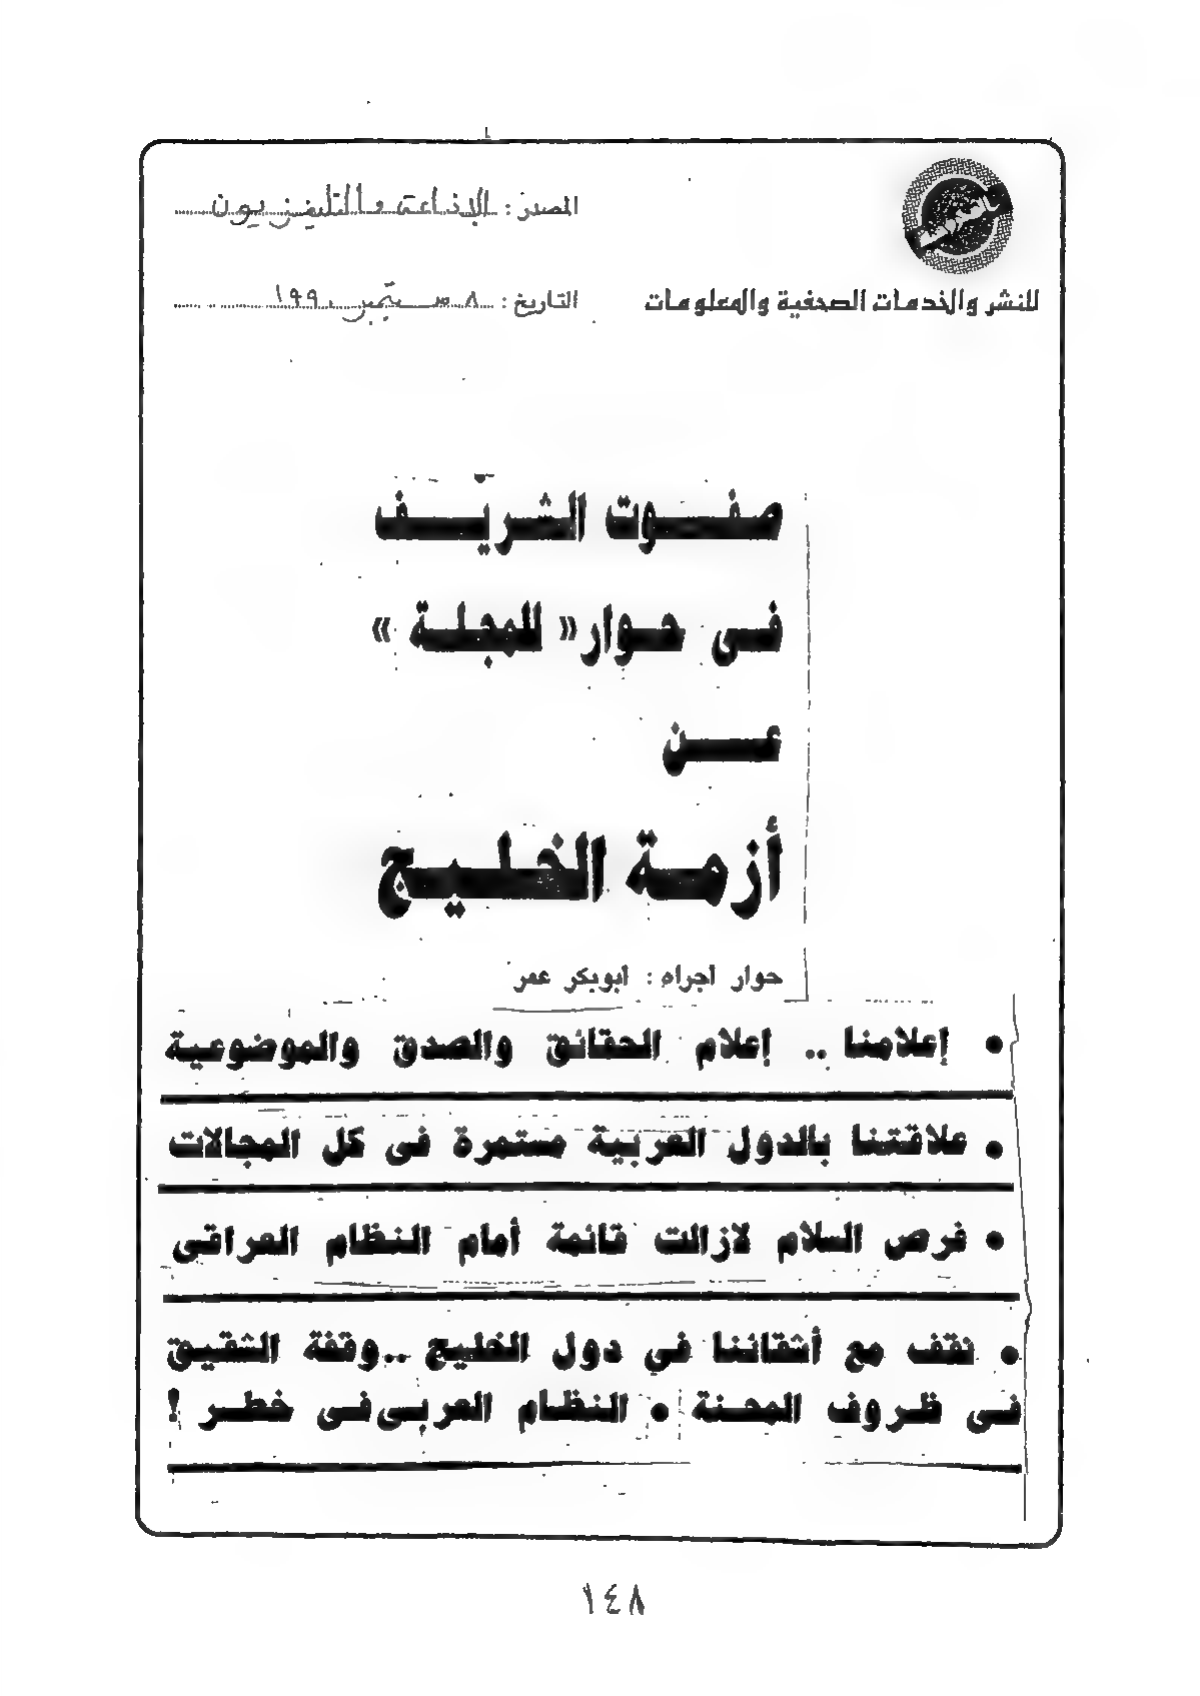 المصدر : الإذاعة والتليفزيون
للنشر والخدمات الصحفية والمعلومات
التاريخ : ٨ سبتمبر ١٩٩٠
صفوت الشريف
فى حوار « للمجلة »
عن
أزمة الخليج
حوار اجراه : ابوبكر عمر
• إعلامنا .. إعلام الحقائق والصدق والموضوعية
• علاقتنا بالدول العربية مستمرة فى كل المجالات
• فرص السلام لازالت قائمة أمام النظام العراقى
• نقف مع أشقائنا في دول الخليج ..وقفة الشقيق
فى ظروف المحنة • النظام العربى فى خطر !
١٤٨